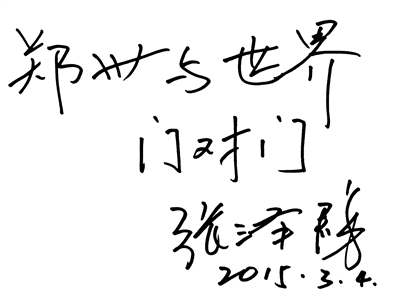 郑州与世界
门对门
张泽群
2015.3.4.